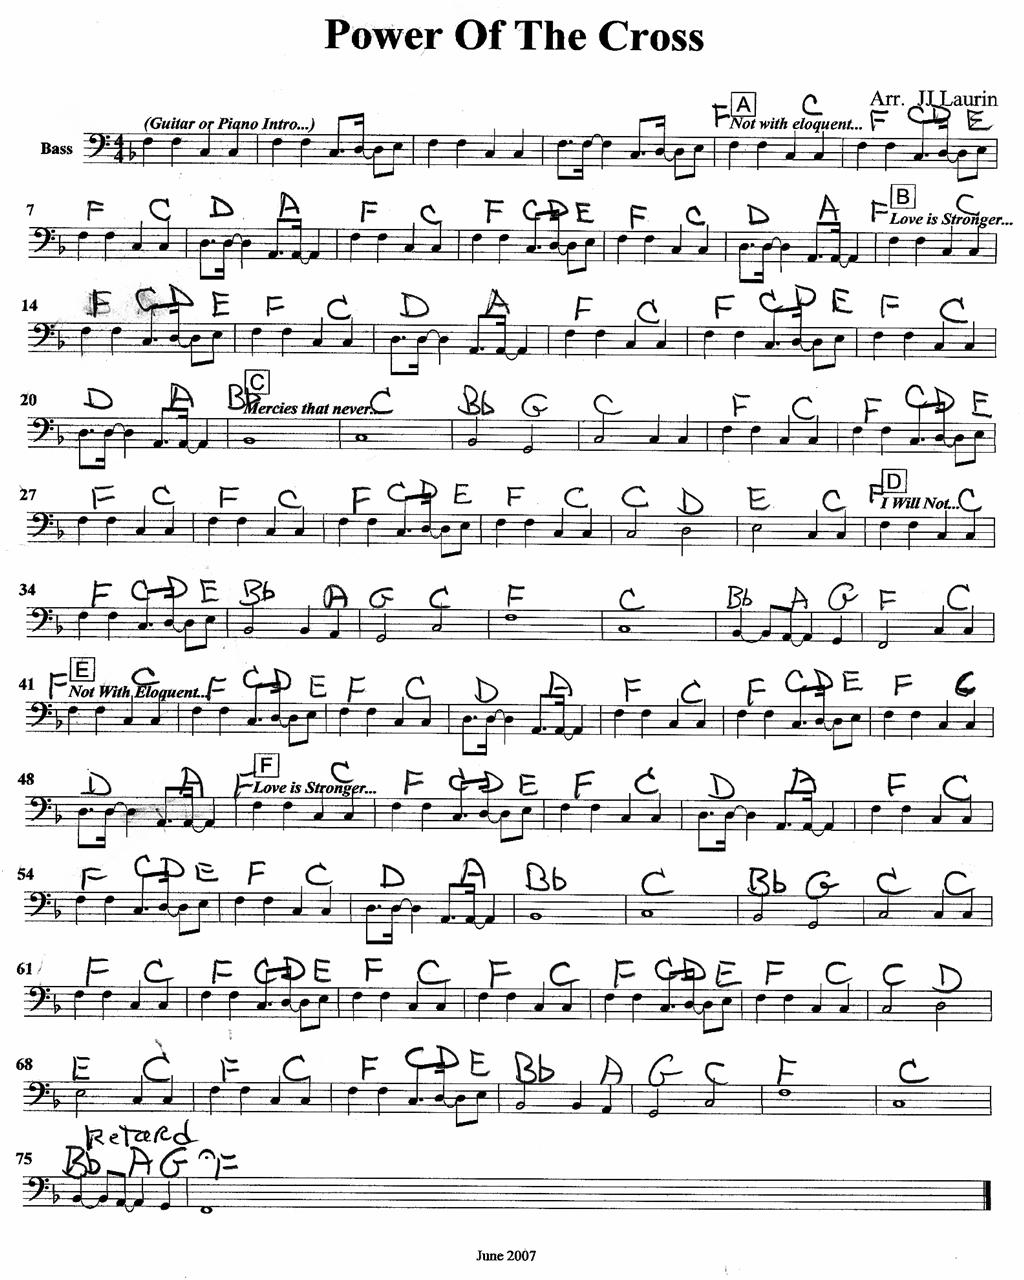 Power Of The Cross
Arr. JJ Laurin
(Guitar or Piano Intro...) A
F Not with eloquent... C F C D E
Bass
7 F C D A F C F C D E F C D A B F Love is Stronger... C
14 F C D E F C D A F C F C D E F C
20 D A C Bb Mercies that never.. C Bb G C F C F C D E
27 F C F C F C D E F C C D E C D F I Will Not... C
34 F C D E Bb A G C F C Bb A G F C
E
41 F Not With Eloquent... C F C D E F C D A F C F C D E F C
48 D A F F Love is Stronger... C F C D E F C D A F C
54 F C D E F C D A Bb C Bb G C C
61 F C F C D E F C F C F C D E F C C D
68 E C F C F C D E Bb A G C F C
Retard
75 Bb A G F
June 2007